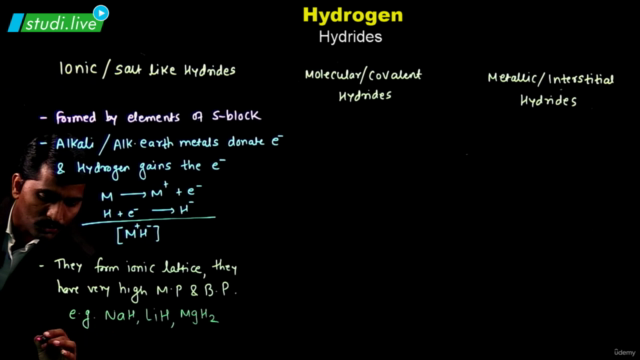 studi.live
Hydrogen
Hydrides
Ionic / Salt like Hydrides
- Formed by elements of S-block
- Alkali / Alk. earth metals donate e-
& Hydrogen gains the e-
M → M+ + e-
H + e- → H-
[M+H-]
- They form ionic lattice, they
have very high M.P & B.P.
e.g. NaH, LiH, MgH2
Molecular/Covalent
Hydrides
Metallic/Interstitial
Hydrides
ûdemy